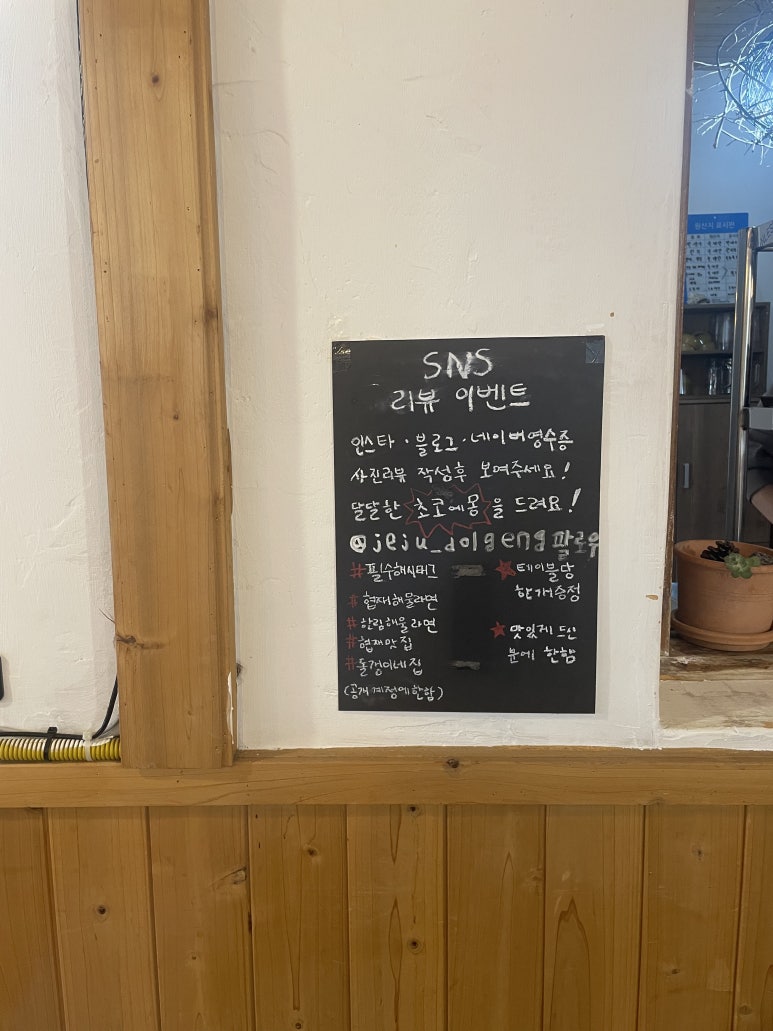 SNS
리뷰 이벤트
인스타 · 블로그 · 네이버영수증
사진리뷰 작성후 보여주세요!
달달한 초코에몽을 드려요!
@jeju_dolgeng 팔로우
#필수해시태그
#협재해물라면
#한림해물라면
#협재맛집
#돌갱이네집
(공개계정에한함)
★테이블당
한개증정
★맛있게 드신
분에 한함
원산지 표시판